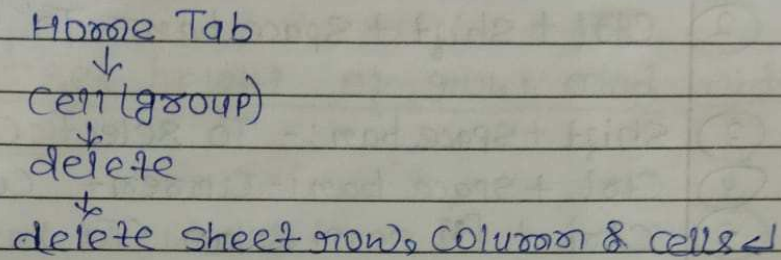 Home Tab
↓
cell (group)
↓
delete
↓
delete sheet row, column & cells ↲